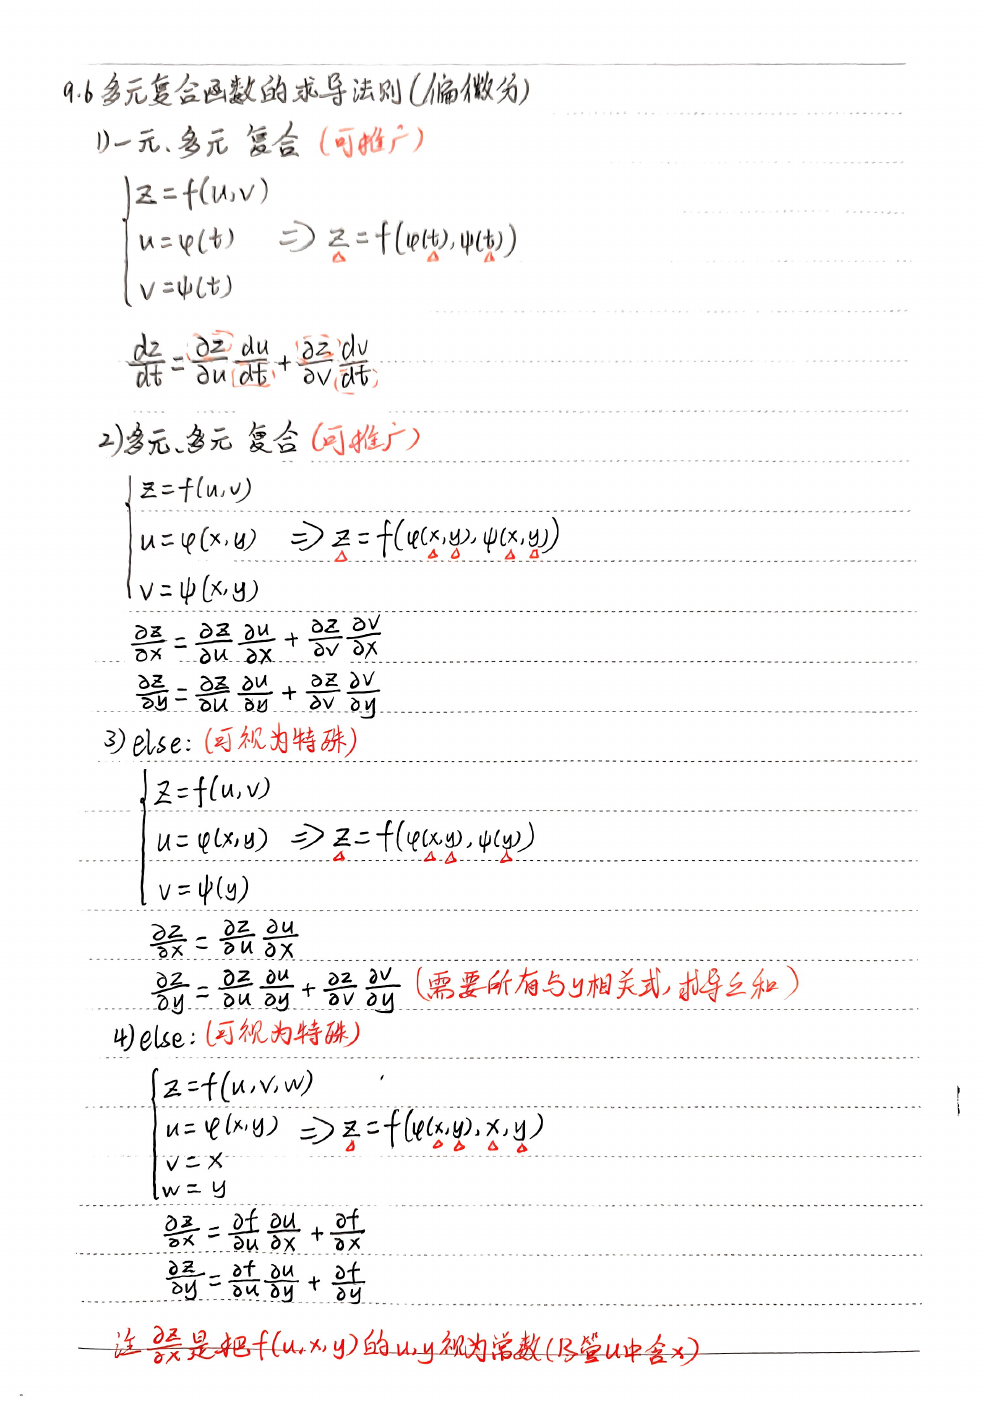 9.6 多元复合函数的求导法则(偏微分)
1)一元、多元 复合 (可推广)
z=f(u,v)
u=φ(t) ⇒ z=f(φ(t),ψ(t))
v=ψ(t)
dz/dt = ∂z/∂u du/dt + ∂z/∂v dv/dt
2)多元、多元 复合 (可推广)
z=f(u,v)
u=φ(x,y) ⇒ z=f(φ(x,y),ψ(x,y))
v=ψ(x,y)
∂z/∂x = ∂z/∂u ∂u/∂x + ∂z/∂v ∂v/∂x
∂z/∂y = ∂z/∂u ∂u/∂y + ∂z/∂v ∂v/∂y
3) else: (可视为特殊)
z=f(u,v)
u=φ(x,y) ⇒ z=f(φ(x,y),ψ(y))
v=ψ(y)
∂z/∂x = ∂z/∂u ∂u/∂x
∂z/∂y = ∂z/∂u ∂u/∂y + ∂z/∂v ∂v/∂y (需要所有与y相关式,求导之和)
4) else: (可视为特殊)
z=f(u,v,w)
u=φ(x,y) ⇒ z=f(φ(x,y),x,y)
v=x
w=y
∂z/∂x = ∂f/∂u ∂u/∂x + ∂f/∂x
∂z/∂y = ∂f/∂u ∂u/∂y + ∂f/∂y
注 ∂z/∂x 是把f(u,x,y)的u,y视为常数(不管u中含x)